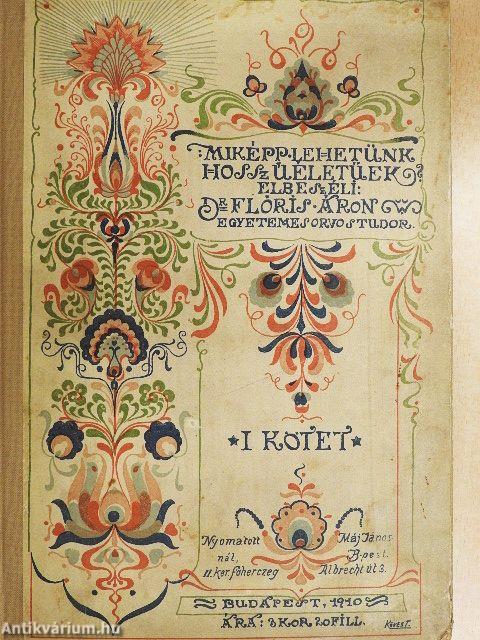 MIKÉPP LEHETÜNK
HOSSZÚÉLETŰEK
ELBESZÉLI:
DR FLÓRIS ÁRON
EGYETEMES ORVOSTUDOR.
★ I KÖTET ★
Nyomatott Máj János
nál, B.pest.
II. ker. főherczeg Albrecht út 3.
BUDAPEST, 1910
ÁRA: 3 KOR 20 FILL.
Antikvárium.hu